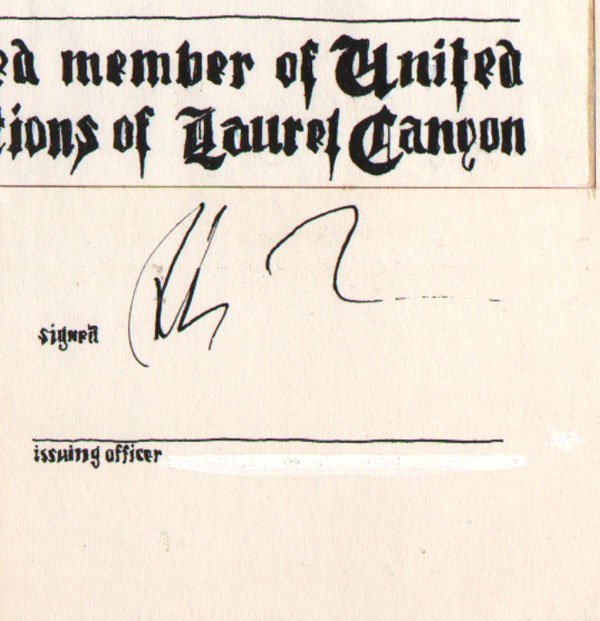 ed member of United
tions of Laurel Canyon
signed
issuing officer